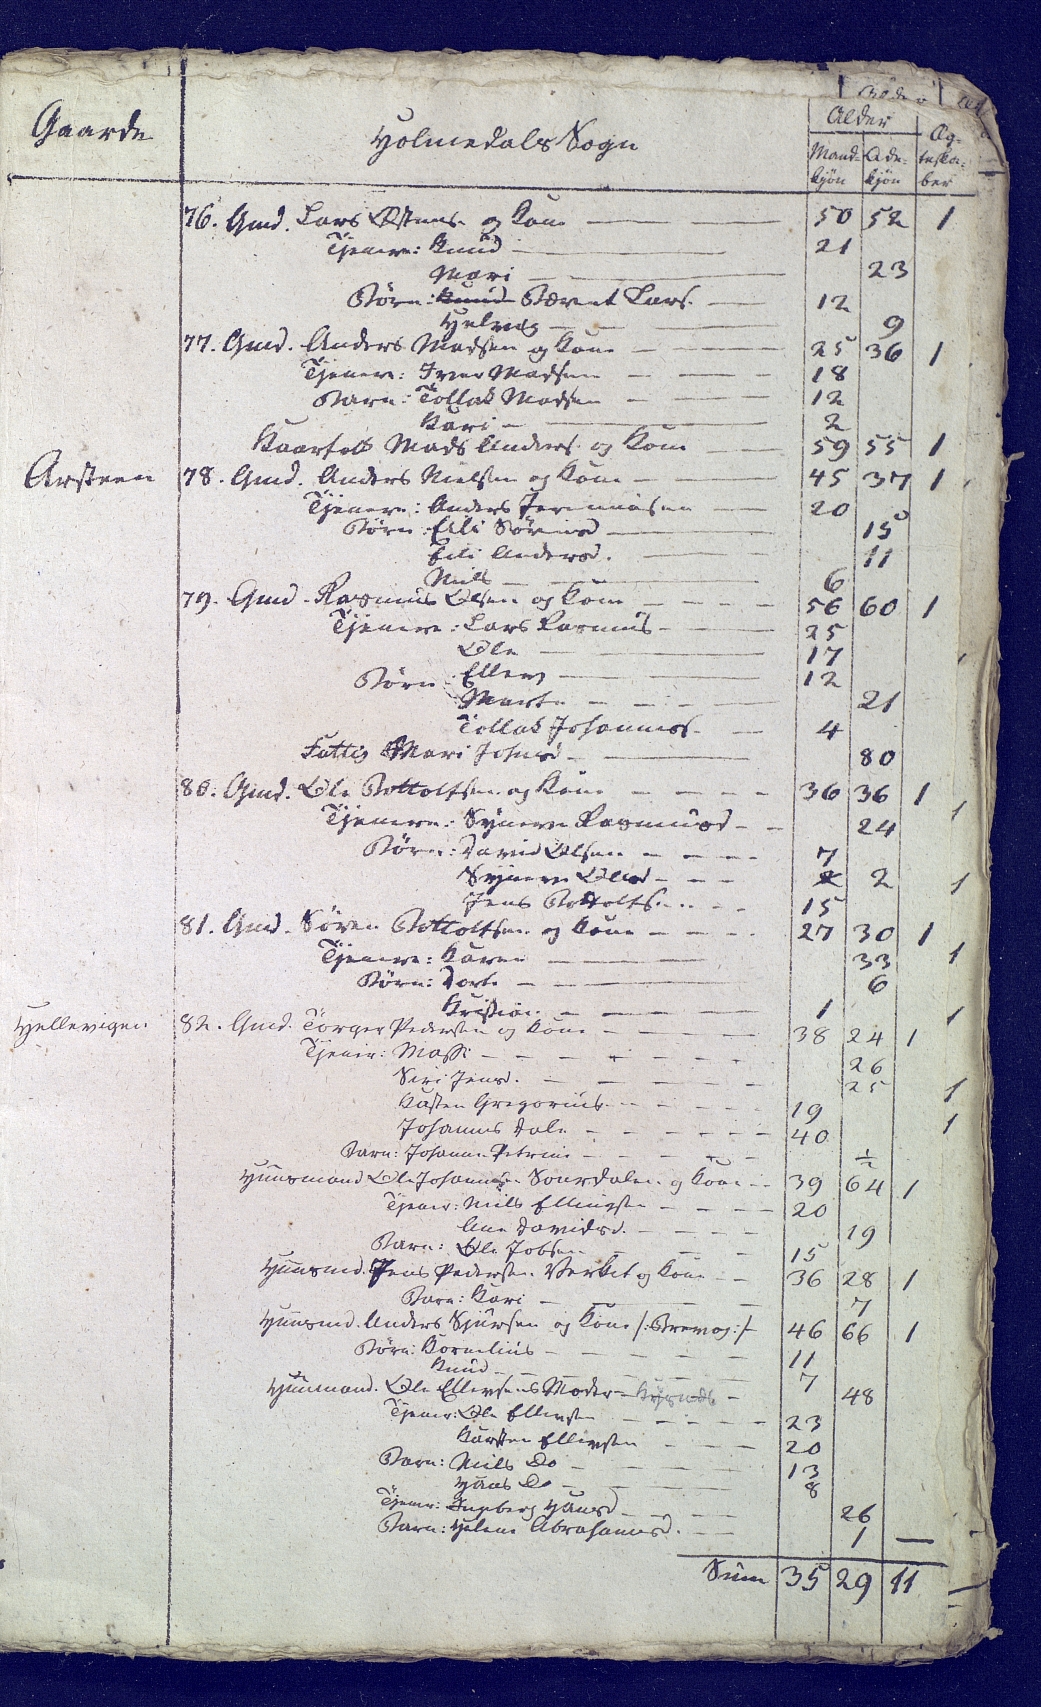 Gaarde Holmedals Sogn Alder Æg-
Mand- Qvin- teska-
kjön kjön ber
76. Gmd. Lars Østens. og Kone 50 52 1
Tjenere: Knud 21
Mari 23
Børn: Knud Bærent Lars. 12
Helvig 9
77. Gmd. Anders Madsen og Kone 25 36 1
Tjenere: Iver Madsen 18
Barn: Tollak Madsen 12
Kari 2
Kaarfolk Mads Anders. og Kone 59 55 1
Arsteen 78. Gmd. Anders Nielsen og Kone 45 37 1
Tjenere: Anders Jeremiasen 20
Børn: Eili Sørensd 15
Eili Andersd. 11
Niels 6
79. Gmd. Rasmus Olsen og Kone 56 60 1
Tjenere: Lars Rasmus 25
Ole 17
Børn Ellev 12
Marte 21
Tollak Johannes. 4
Fattig Mari Johnsd 80
80. Gmd. Ole Bottolfsen og Kone 36 36 1
Tjenere: Synneve Rasmusd 24 1
Børn: David Olsen 7
Synneve Olsd 2 2 1
Jens Bottolfs. 15
81. Gmd. Søren Bottolfsen og Kone 27 30 1
Tjenere: Karen 33 1
Børn: Dorte 6
Kristian 1 1
Hellevigen 82. Gmd. Torger Pedersen og Kone 38 24 1
Tjener: Massi 26
Siri Jensd. 25 1
Kasten Gregorius. 19
Johannes Dale 40 1
Barn: Johanne Petrine ½
Huusmand Ole Johannesen Sourdalen og Kone 39 64 1
Tjener: Niels Ellingsen 20
Ane Davidsd. 19
Barn: Ole Jobsen 15
Huusmd. Jens Pedersen Verket og Kone 36 28 1
Barn: Kari 7
Huusmd. Anders Sjursen og Kone /: :/ 46 66 1
Børn: Kornelius 11
Knud 7
Huusmand. Ole Ellevsens Moder 48
Tjener: Ole Ellevsen 23
Karsten Ellevsen 20
Barn: Niels Do 13
Hans Do 8
Tjener: Ingeborg Hansd 26
Barn: Helene Abrahamsd. 1
Sum 35 29 11